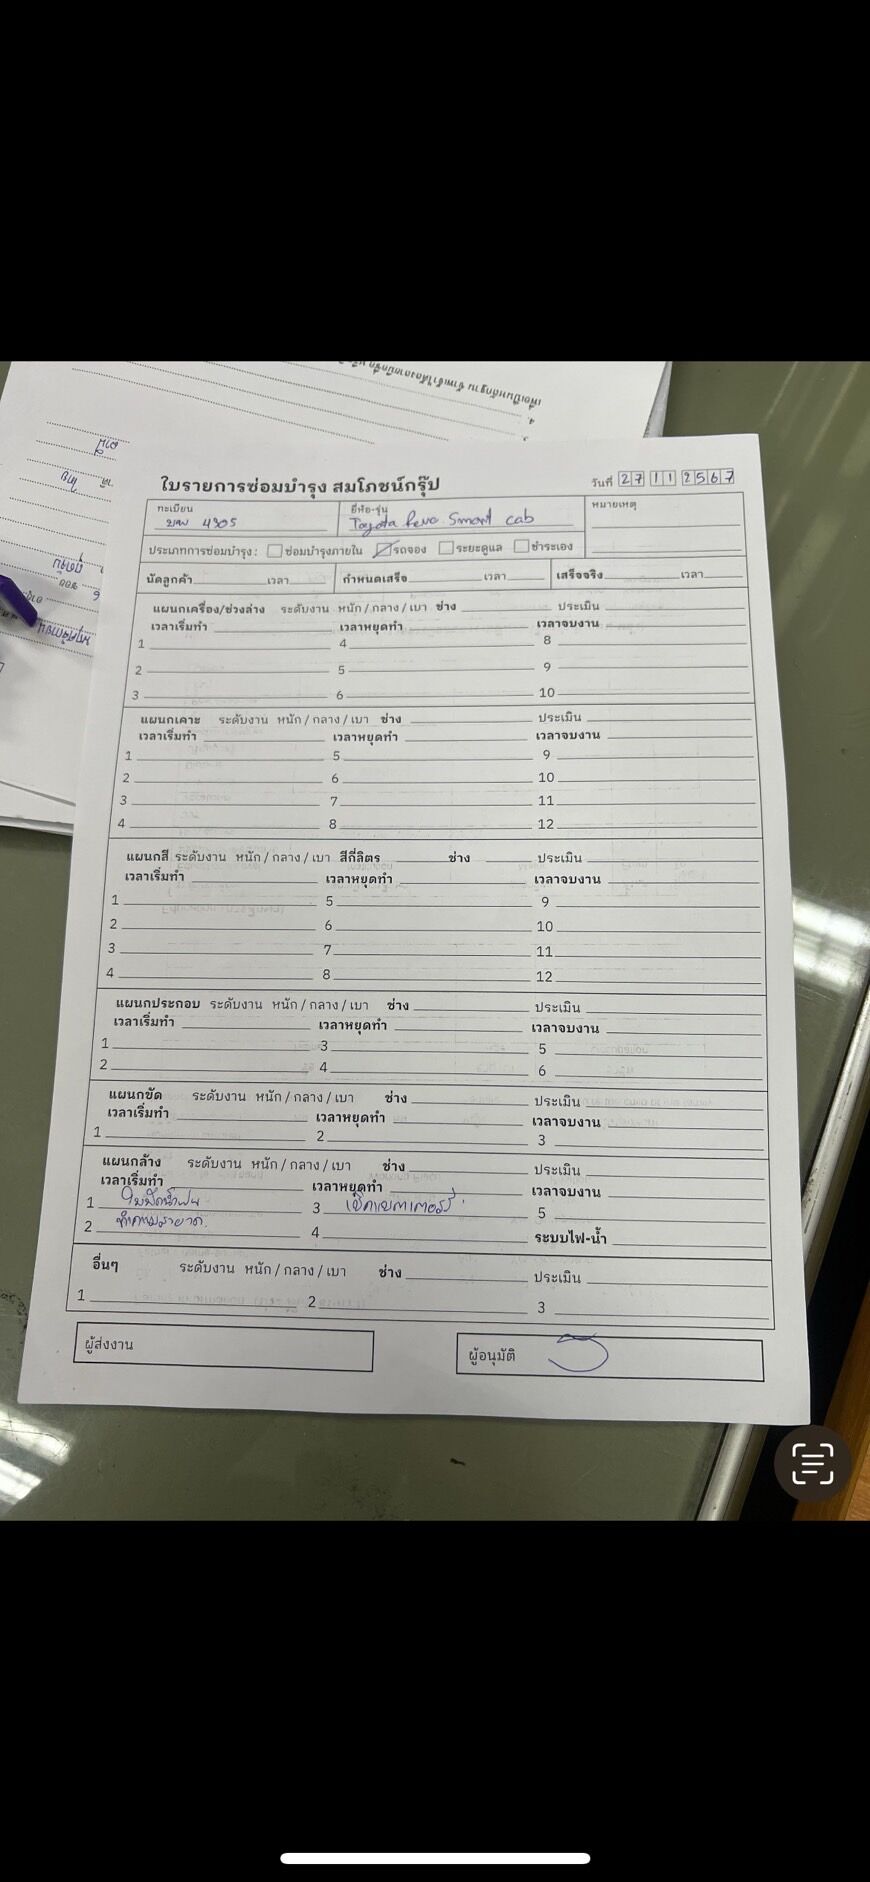 เพื่อเป็นหลักฐาน ข้าพเจ้าได้ลงลายมือชื่อ
4.
ใบรายการซ่อมบำรุง สมโภชน์กรุ๊ป
วันที่ 27 11 2567
ทะเบียน 4905
ยี่ห้อ-รุ่น Toyota Revo Smart cab
หมายเหตุ
ประเภทการซ่อมบำรุง : ซ่อมบำรุงภายใน รถจอง ระยะดูแล ชำระเอง
นัดลูกค้า เวลา กำหนดเสร็จ เวลา เสร็จจริง เวลา
แผนกเครื่อง/ช่วงล่าง ระดับงาน หนัก / กลาง / เบา ช่าง ประเมิน
เวลาเริ่มทำ เวลาหยุดทำ เวลาจบงาน
1 4 8
2 5 9
3 6 10
แผนกเคาะ ระดับงาน หนัก / กลาง / เบา ช่าง ประเมิน
เวลาเริ่มทำ เวลาหยุดทำ เวลาจบงาน
1 5 9
2 6 10
3 7 11
4 8 12
แผนกสี ระดับงาน หนัก / กลาง / เบา สีกี่ลิตร ช่าง ประเมิน
เวลาเริ่มทำ เวลาหยุดทำ เวลาจบงาน
1 5 9
2 6 10
3 7 11
4 8 12
แผนกประกอบ ระดับงาน หนัก / กลาง / เบา ช่าง ประเมิน
เวลาเริ่มทำ เวลาหยุดทำ เวลาจบงาน
1 3 5
2 4 6
แผนกขัด ระดับงาน หนัก / กลาง / เบา ช่าง ประเมิน
เวลาเริ่มทำ เวลาหยุดทำ เวลาจบงาน
1 2 3
แผนกล้าง ระดับงาน หนัก / กลาง / เบา ช่าง ประเมิน
เวลาเริ่มทำ เวลาหยุดทำ เวลาจบงาน
1 ใบปัดน้ำฝน 3 เช็คแบตเตอรรี่ 5
2 ทำความสะอาด 4 ระบบไฟ-น้ำ
อื่นๆ ระดับงาน หนัก / กลาง / เบา ช่าง ประเมิน
1 2 3
ผู้ส่งงาน
ผู้อนุมัติ